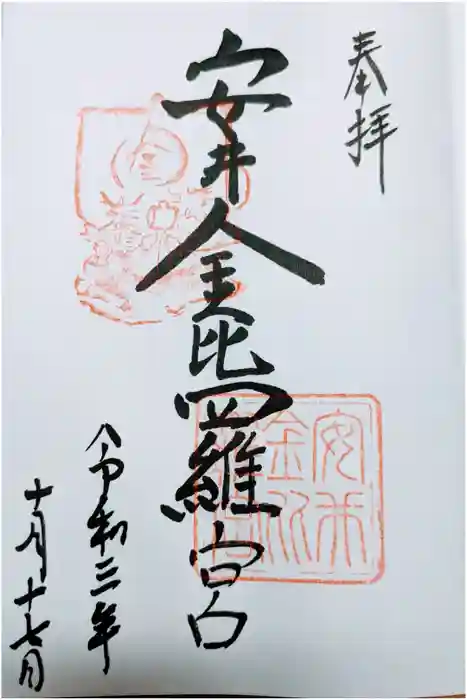 奉拝
安井金比羅宮
安井
金比
羅宮
令和三年
十一月十七日